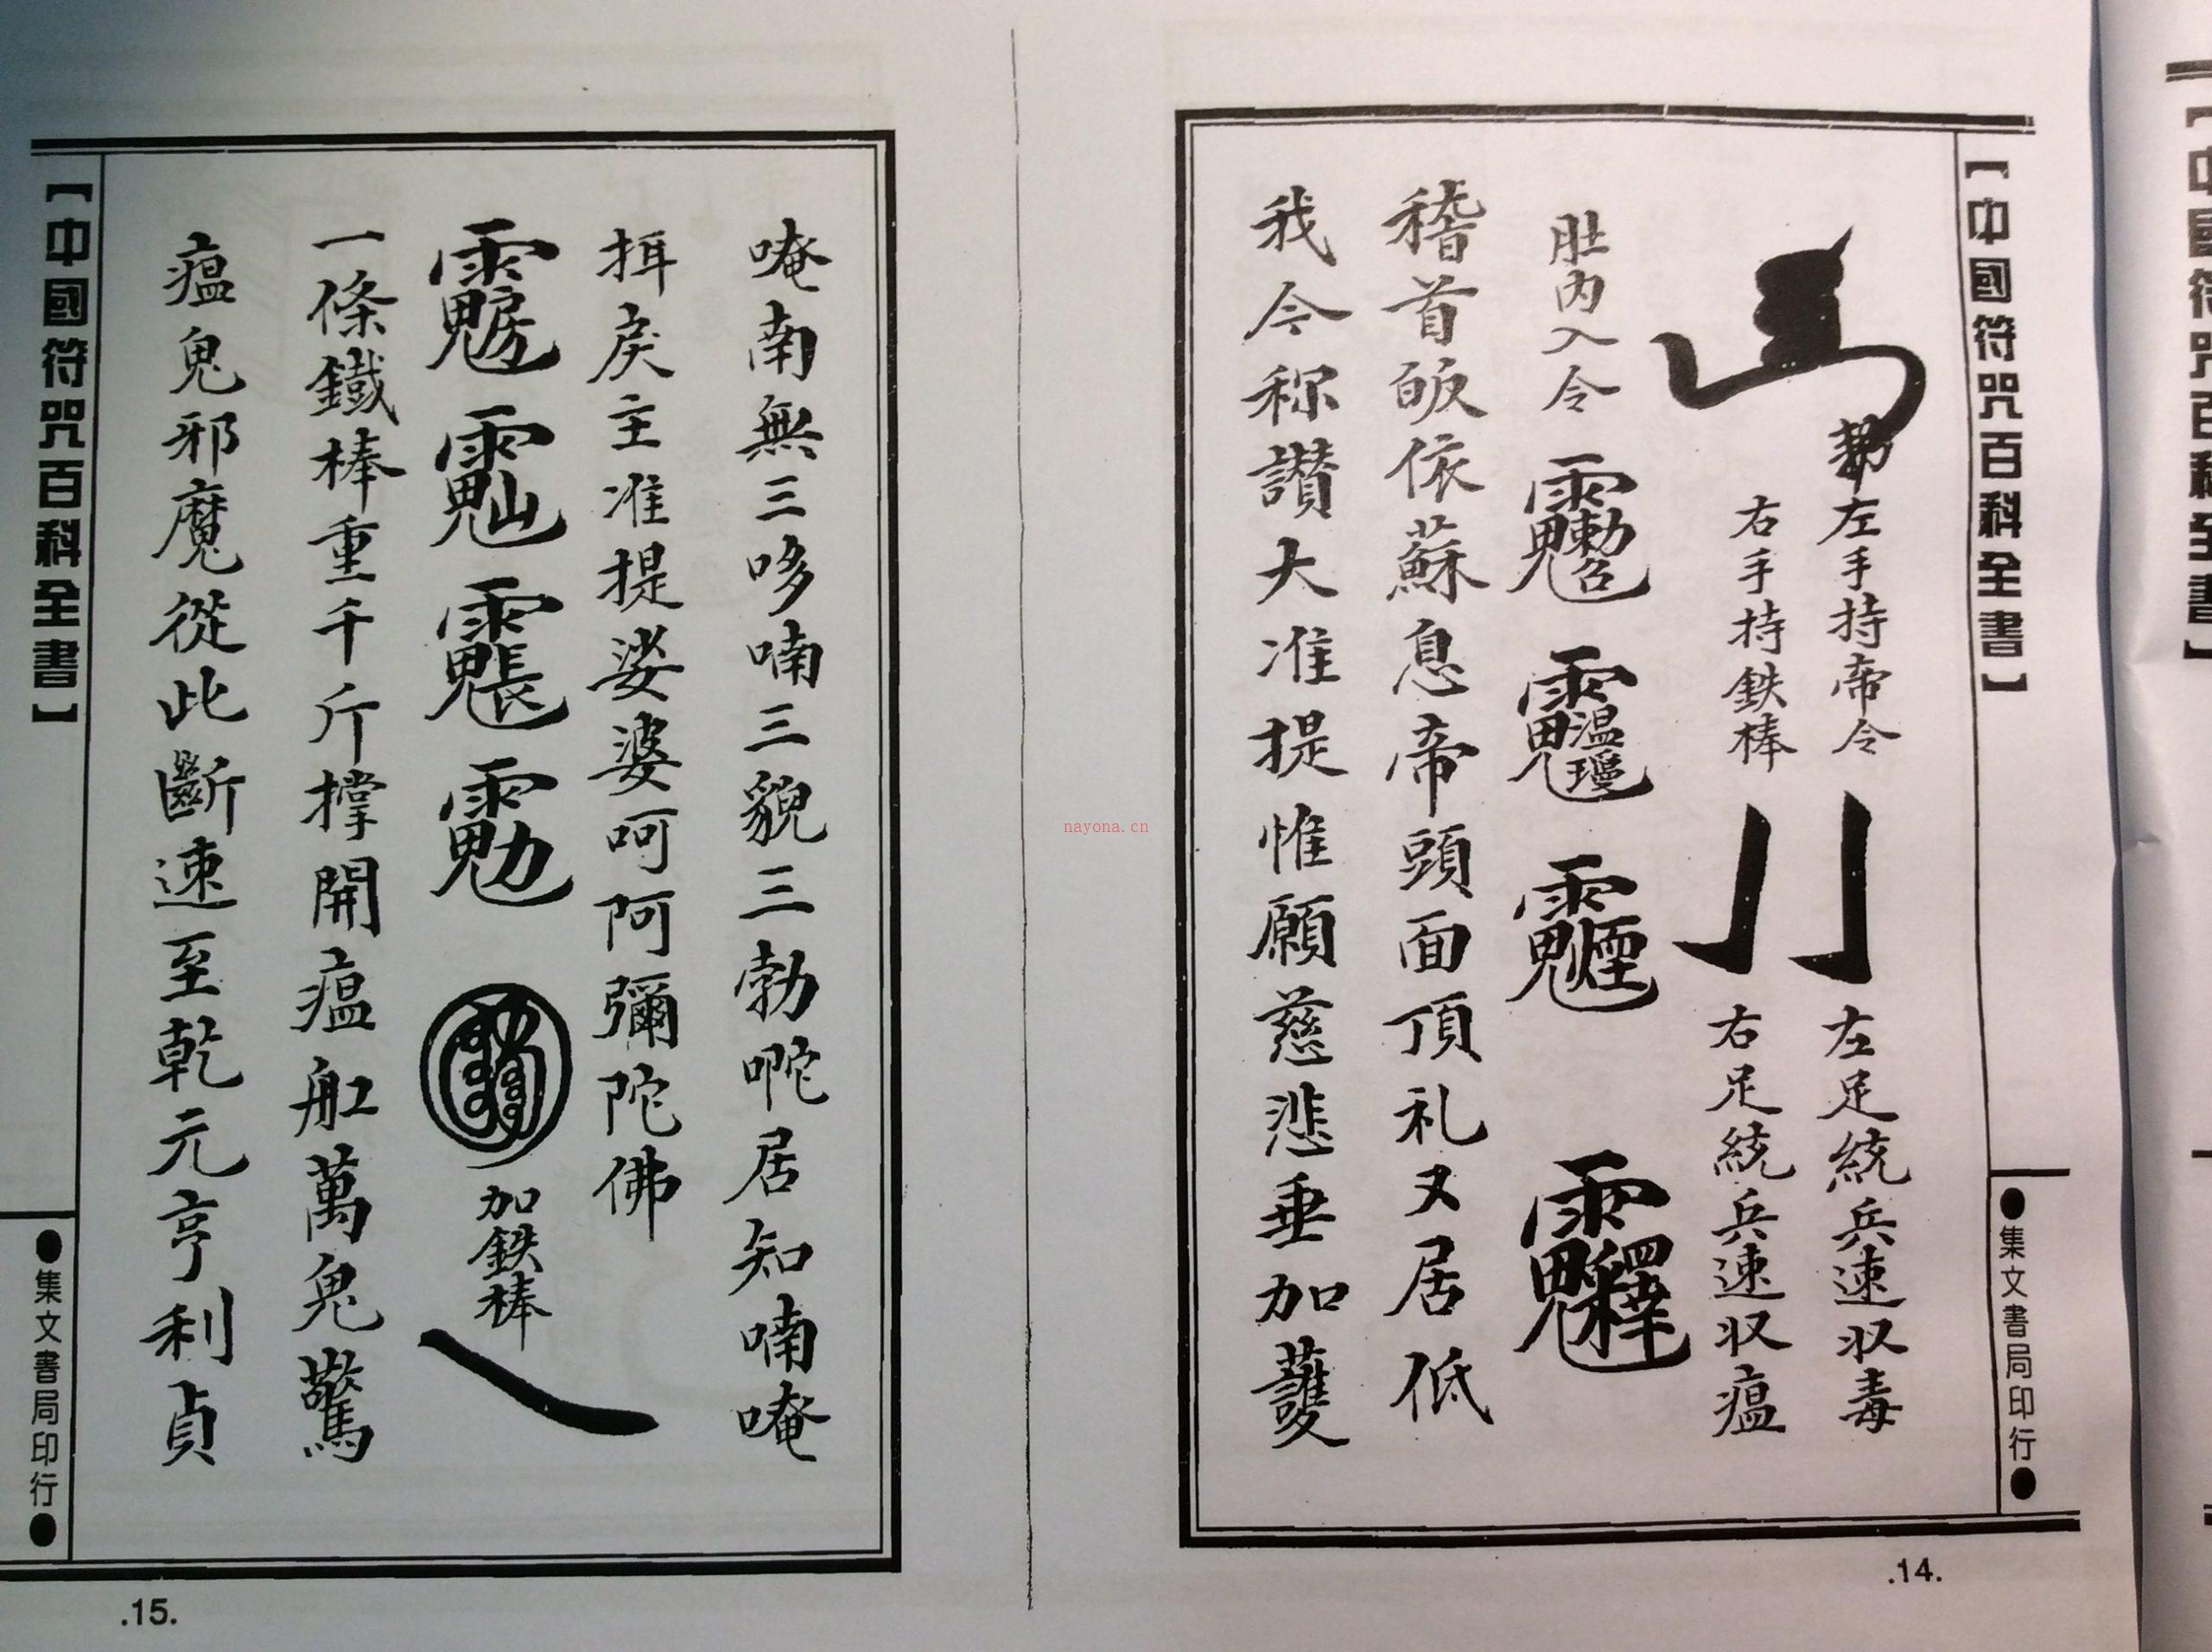 【中國符咒百科全書】
●集文書局印行●
左手持帝令
右手持鉄棒
左足統兵速収毒
右足統兵速収瘟
肚内入令
稽首皈依蘇息帝頭面頂礼又居低
我今称讃大准提惟願慈悲垂加護
.14.
唵南無三哆喃三貌三勃喍居知喃唵
挕戾主准提娑婆呵阿彌陀佛
加鉄棒
一條鐵棒重千斤撑開瘟舡萬鬼驚
瘟鬼邪魔從此斷速至乾元亨利貞
【中國符咒百科全書】
●集文書局印行●
.15.
nayona.cn